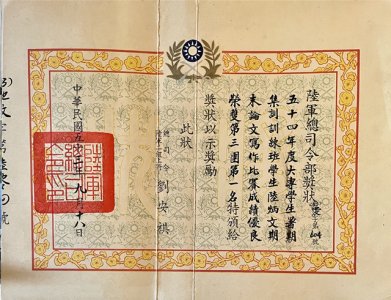 陸軍總司令部獎狀
五十四年度大專學生暑期
集訓訓練班學生陸炳文期
末論文寫作比賽成績優良
榮獲第三團第一名特頒給
獎狀以示獎勵
此狀
總司令
陸軍二級上將
劉安祺
中華民國五十四年九月十八日